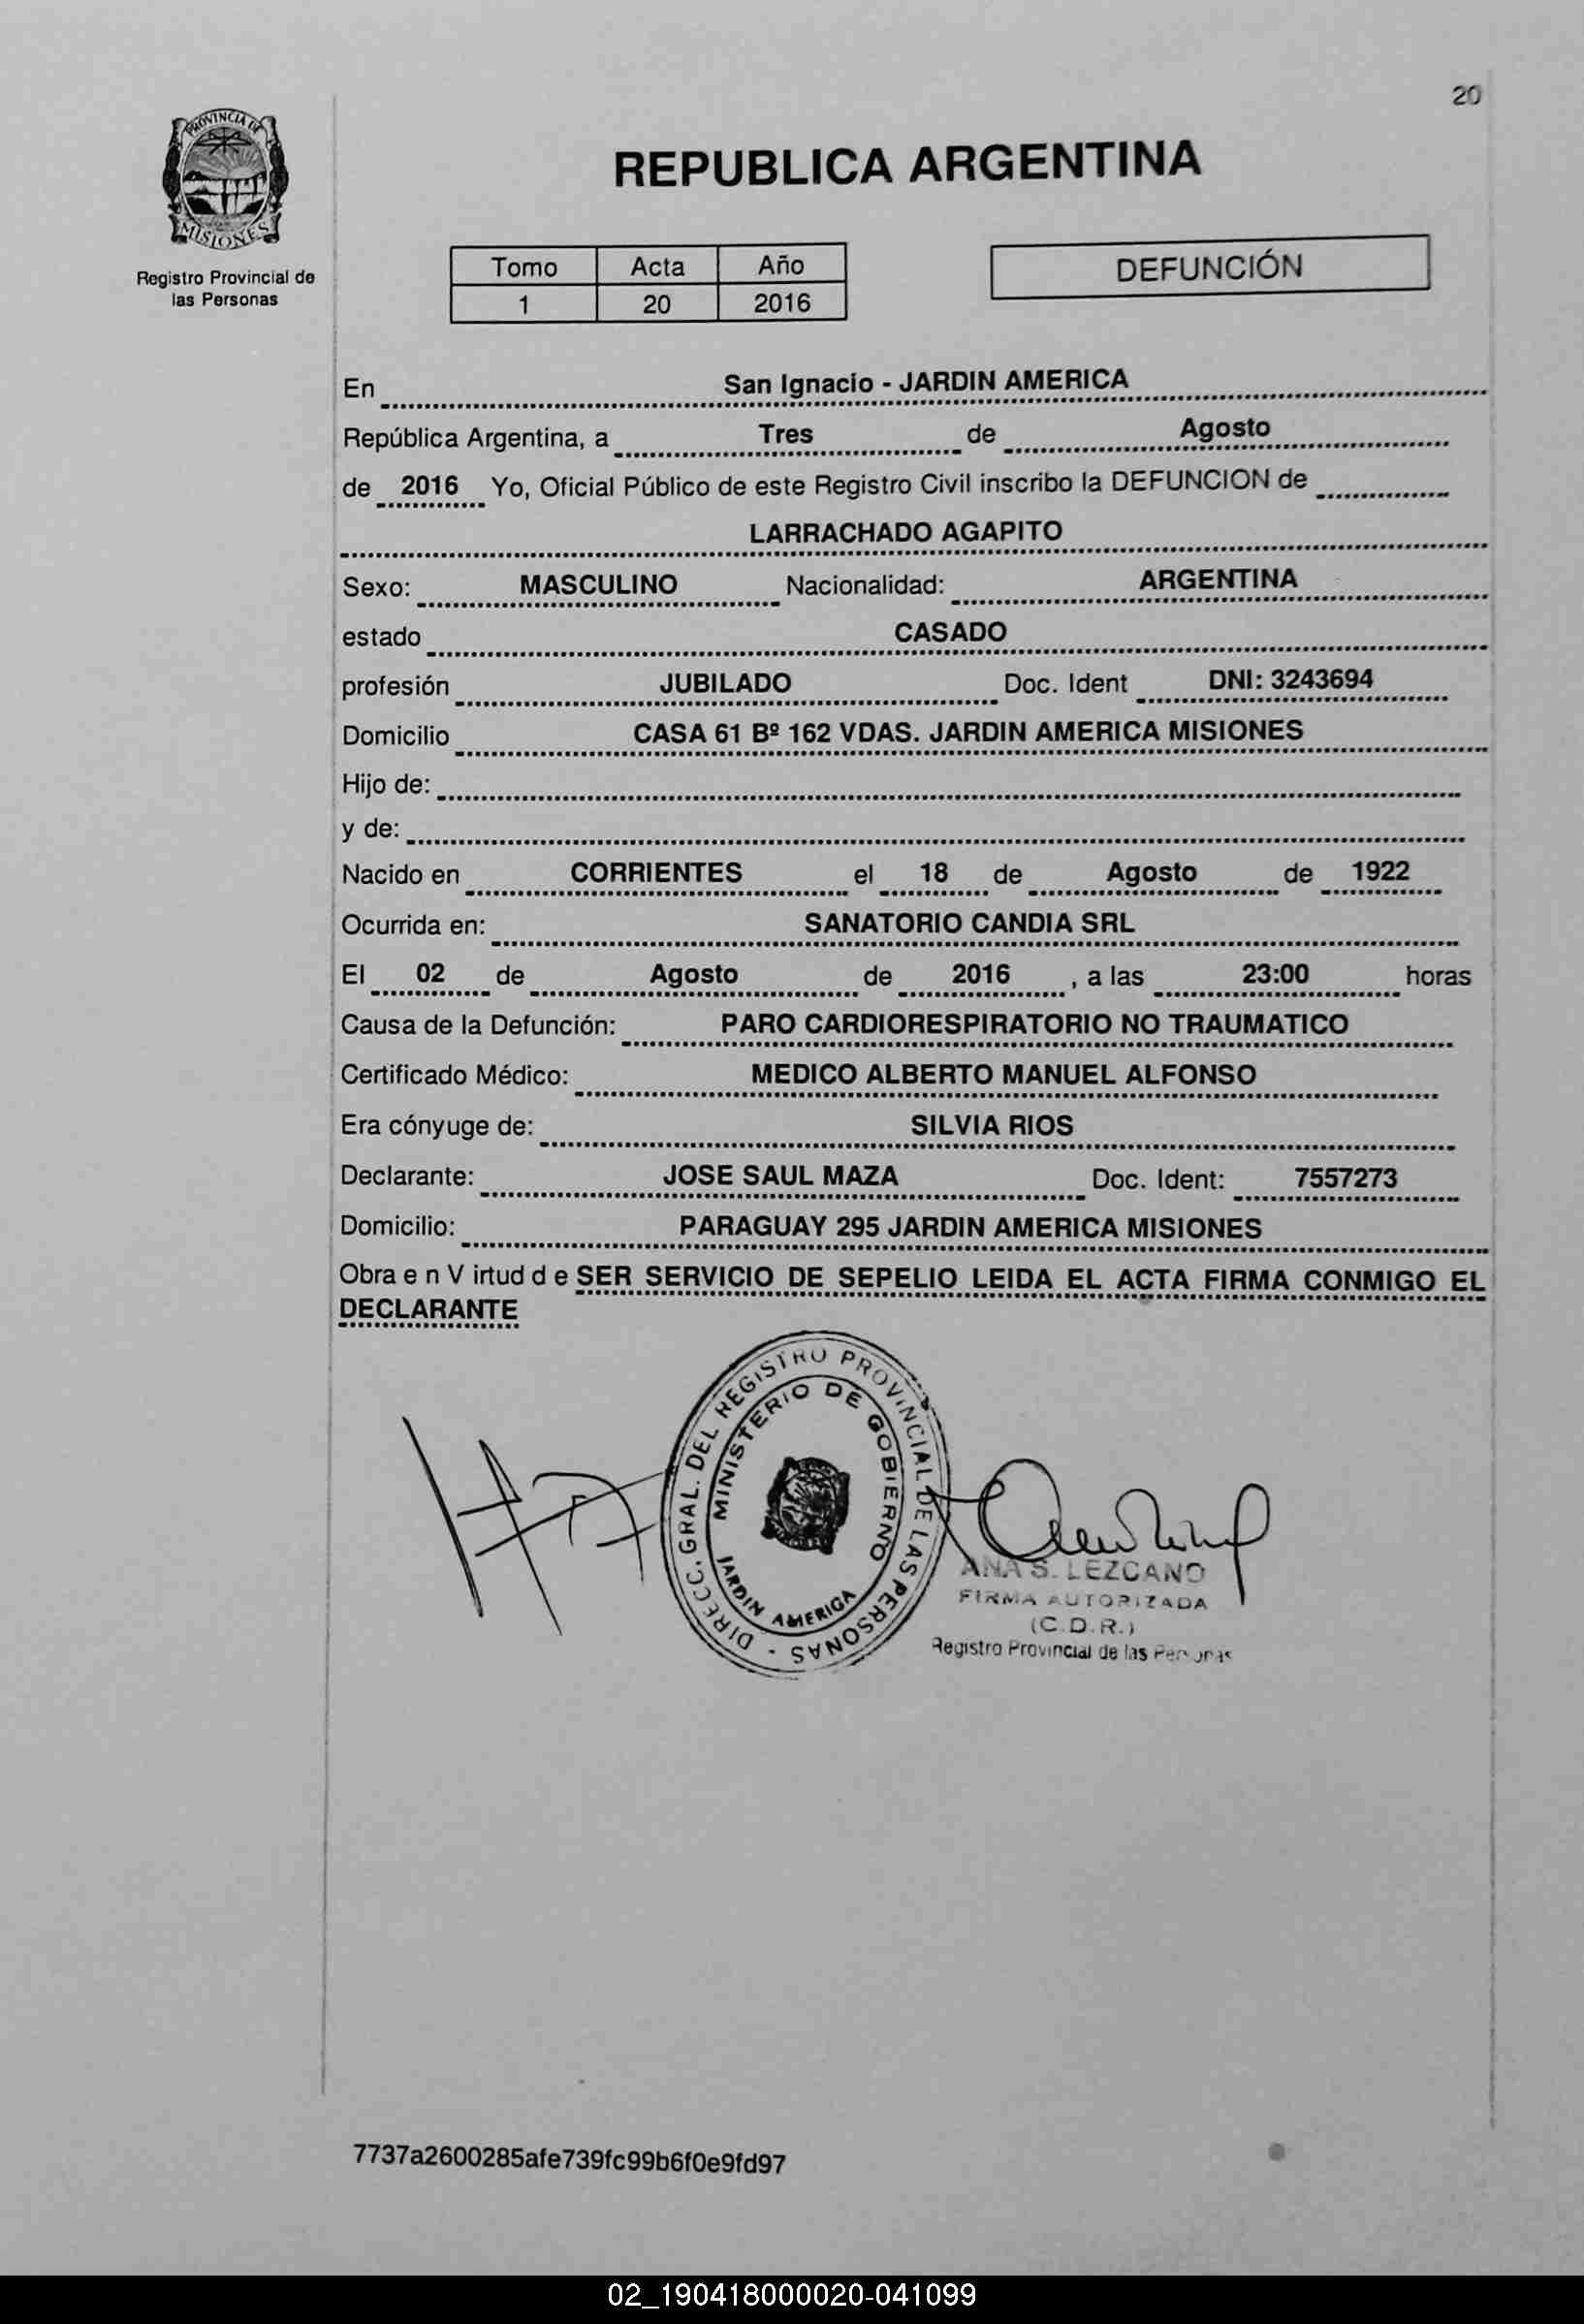 20
PROVINCIA DE
MISIONES
Registro Provincial de
las Personas
REPUBLICA ARGENTINA
Tomo Acta Año
1 20 2016
DEFUNCIÓN
En San Ignacio - JARDIN AMERICA
República Argentina, a Tres de Agosto
de 2016 Yo, Oficial Público de este Registro Civil inscribo la DEFUNCION de
LARRACHADO AGAPITO
Sexo: MASCULINO Nacionalidad: ARGENTINA
estado CASADO
profesión JUBILADO Doc. Ident DNI: 3243694
Domicilio CASA 61 Bº 162 VDAS. JARDIN AMERICA MISIONES
Hijo de:
y de:
Nacido en CORRIENTES el 18 de Agosto de 1922
Ocurrida en: SANATORIO CANDIA SRL
El 02 de Agosto de 2016 , a las 23:00 horas
Causa de la Defunción: PARO CARDIORESPIRATORIO NO TRAUMATICO
Certificado Médico: MEDICO ALBERTO MANUEL ALFONSO
Era cónyuge de: SILVIA RIOS
Declarante: JOSE SAUL MAZA Doc. Ident: 7557273
Domicilio: PARAGUAY 295 JARDIN AMERICA MISIONES
Obra e n V irtud d e SER SERVICIO DE SEPELIO LEIDA EL ACTA FIRMA CONMIGO EL
DECLARANTE
DIRECC. GRAL. DEL REGISTRO PROVINCIAL DE LAS PERSONAS -
MINISTERIO DE GOBIERNO
JARDIN AMERICA
ANA S. LEZCANO
FIRMA AUTORIZADA
(C.D.R.)
Registro Provincial de las Personas
7737a2600285afe739fc99b6f0e9fd97
02_190418000020-041099